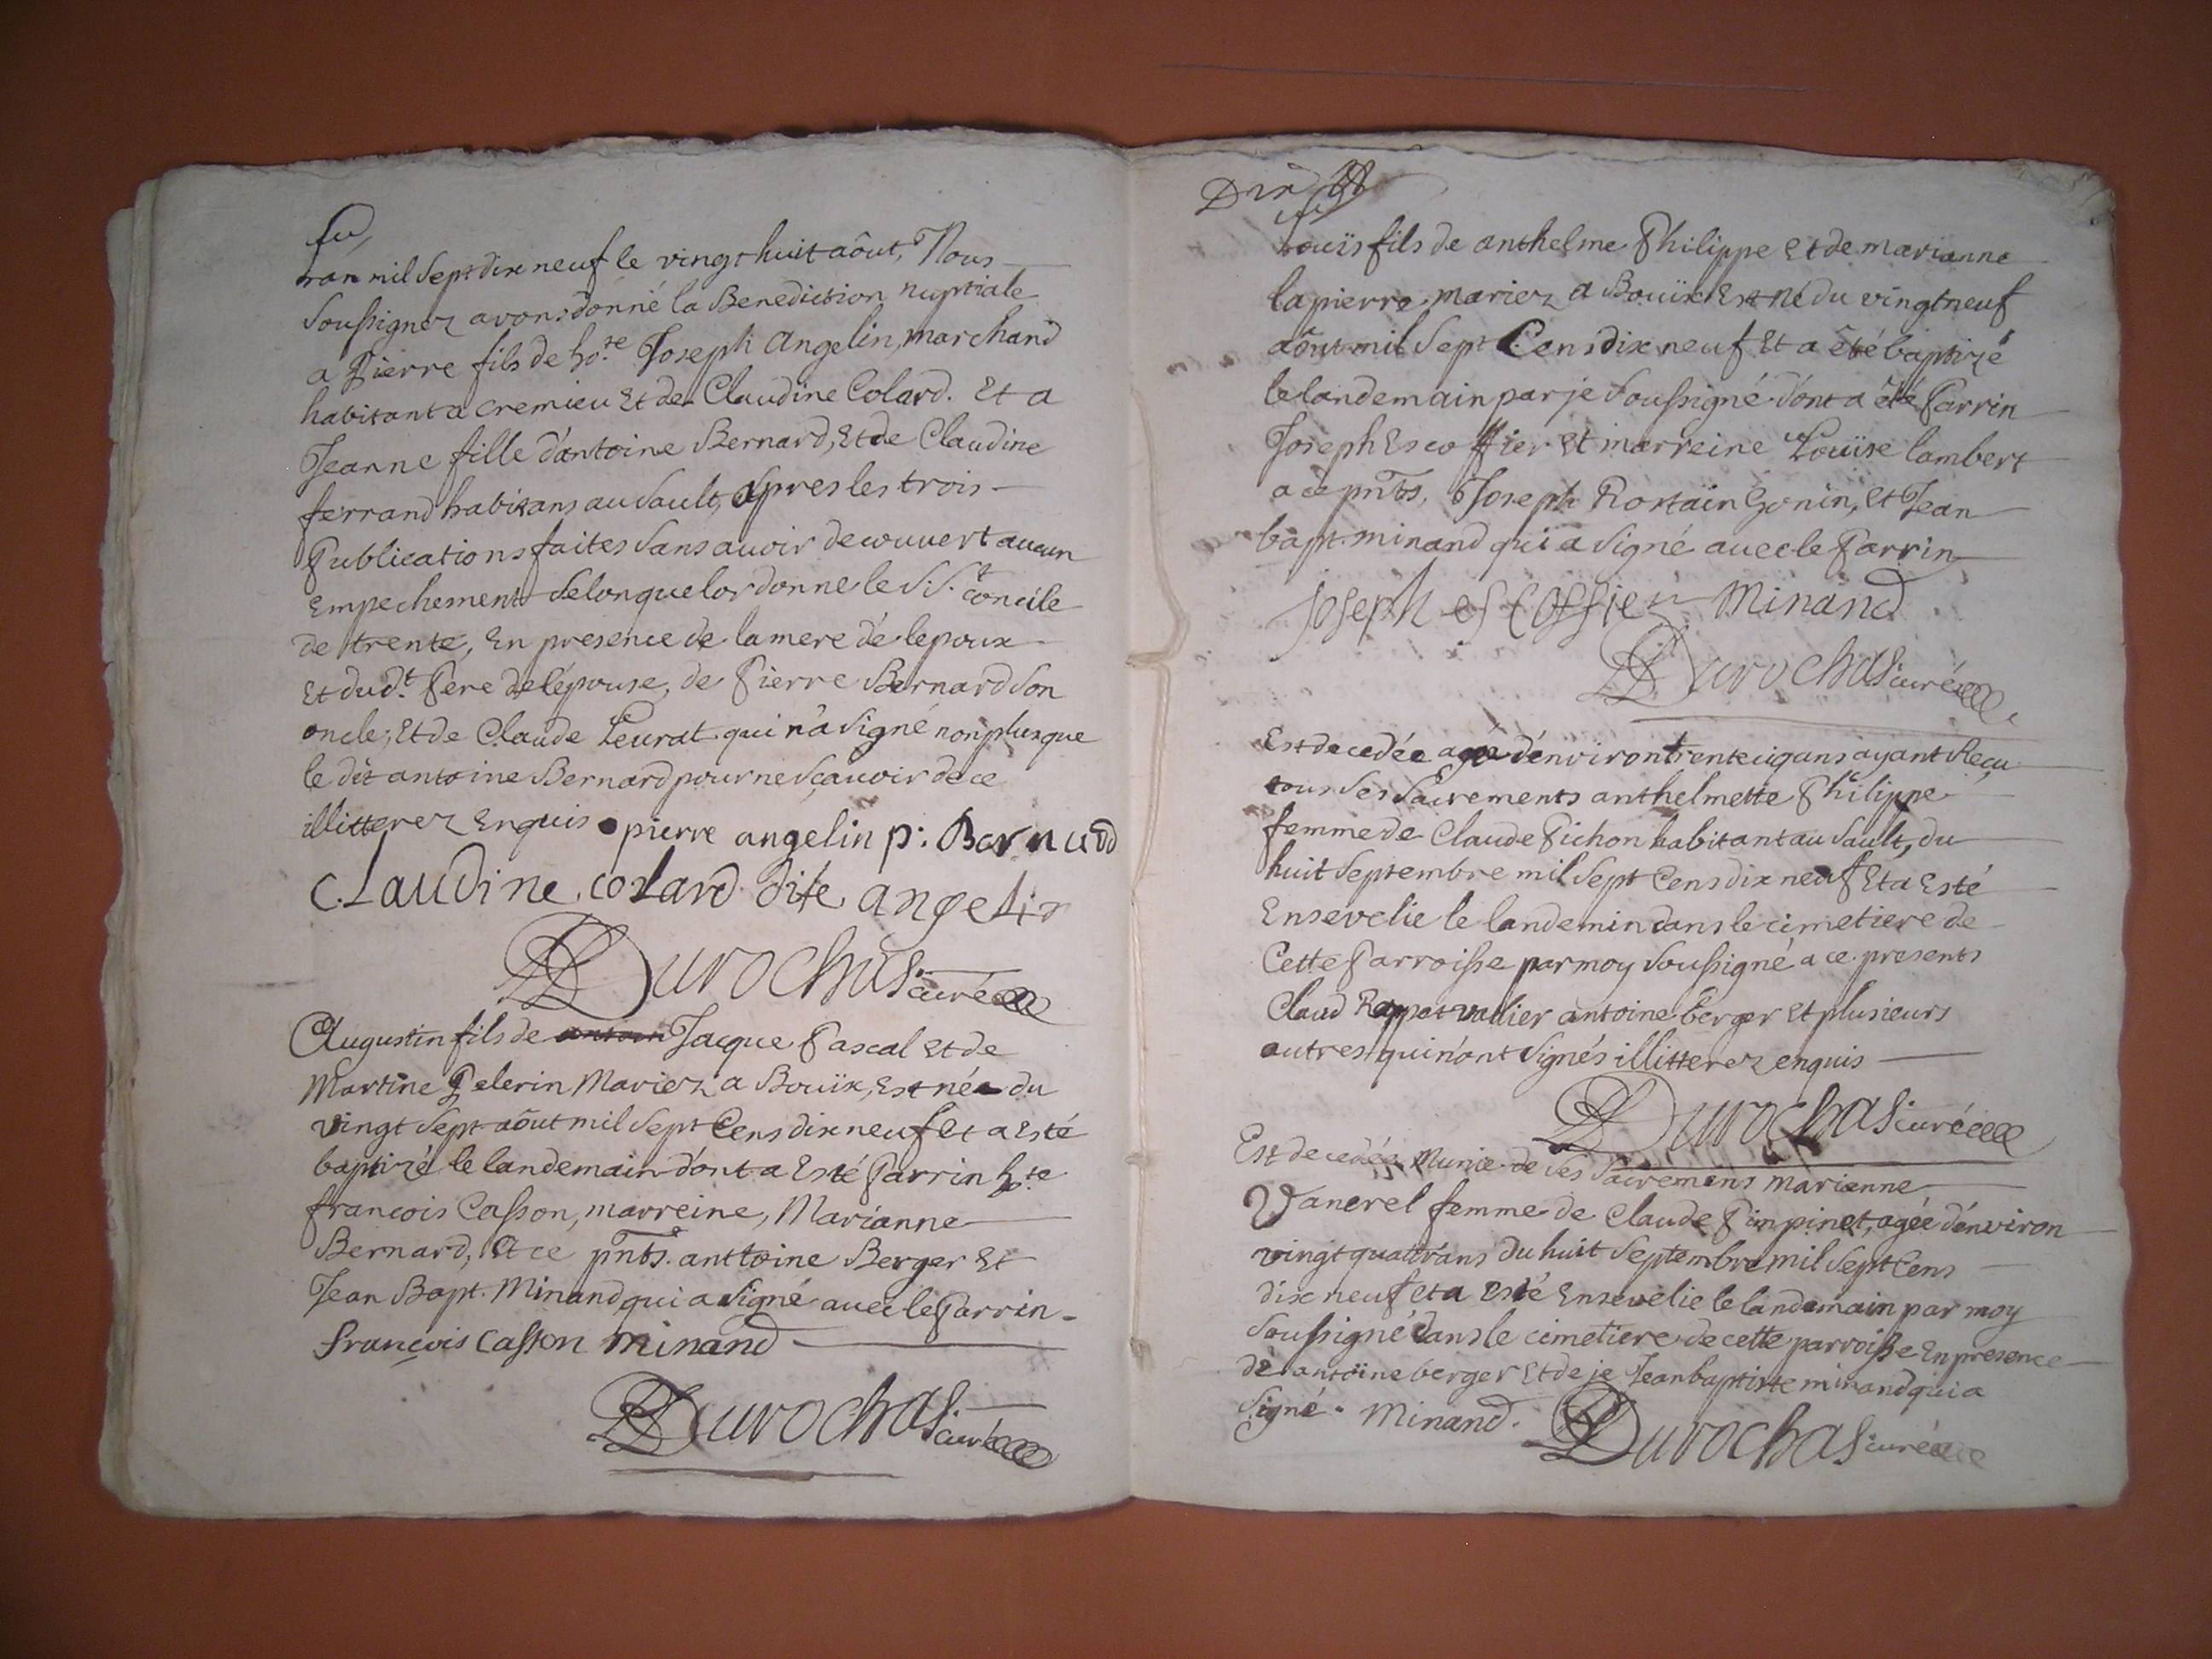 Lan mil Sept dix neuf le vingt huit aôut, Nous
Soussignez avons donné la Benediction nuptiale
a Pierre fils de ho.te Joseph Angelin, marchand
habitant a cremieu et de Claudine Colard. Et a
Jeanne fille d'antoine Bernard, Et de Claudine
ferrand habitans au Sault, apres les trois
Publications faites Sans auoir decouuert aucun
Empechement Selon que lordonne le S.t Concile
de trente, En presence de la mere dé lepoux
Et dud.t Pere de lépouse, de Pierre Bernard Son
oncle, Et de Claude Leurat qui n'a Signé non plus que
le dit antoine Bernard pour ne Sçauoir de ce
illitterez Enquis pierre angelin p: Barnard
CLaudine colard dite angelin
Durochas curé
Augustin fils de antoin Jacque Pascal et de
Martine Pelerin Mariez a Bouïx, Est née du
vingt Sept aôut mil Sept Cens dix neuf et a Esté
baptizé le landemain d'ont a Esté Parrin ho.te
francois Casson, marreine, Marianne
Bernard, et ce pnts. anttoine Berger Et
Jean Bapt. Minand qui a Signé auec le Parrin
françois Casson Minand
Durochas curé
Dix
Louïs fils de anthelme Philippe Et de marianne
lapierre mariez a Bouïx Est né du vingt neuf
aôut mil Sept Cens dix neuf Et a été baptizé
le landemain par je Soussigné d'ont a été Parrin
Joseph Escoffier Et marreine Louïse lambert
a ce pnts, Joseph Rostain Gonin, Et Jean
bapt. minand qui a Signé auec le Parrin
joseph escoffier Minand
Durochas curé
Est decedée agée d'environ trente ciq ans ayant Reçu
tous Ses Sacrements anthelmette Philippe
femme de Claude Pichon habitant au Sault, du
huit Septembre mil Sept Cens dix neuf Et a Esté
Ensevelie le landemin dans le cimetiere de
Cette Parroisse par moy Soussigné a ce presents
Claud Rappet vallier antoine berger Et plusieurs
autres qui n'ont Signés illitterez enquis
Durochas curé
Est decedée Munie de ses Sacremens marianne
Vanerel femme de Claude Pinpinet, agée d'environ
vingt quattr'ans du huit Septembre mil Sept Cens
dix neuf et a Esté Ensevelie le landemain par moy
Soussigné dans le cimetiere de cette parroisse En presence
de antoine berger Et de je Jean baptiste minand qui a
Signé. Minand.
Durochas curé